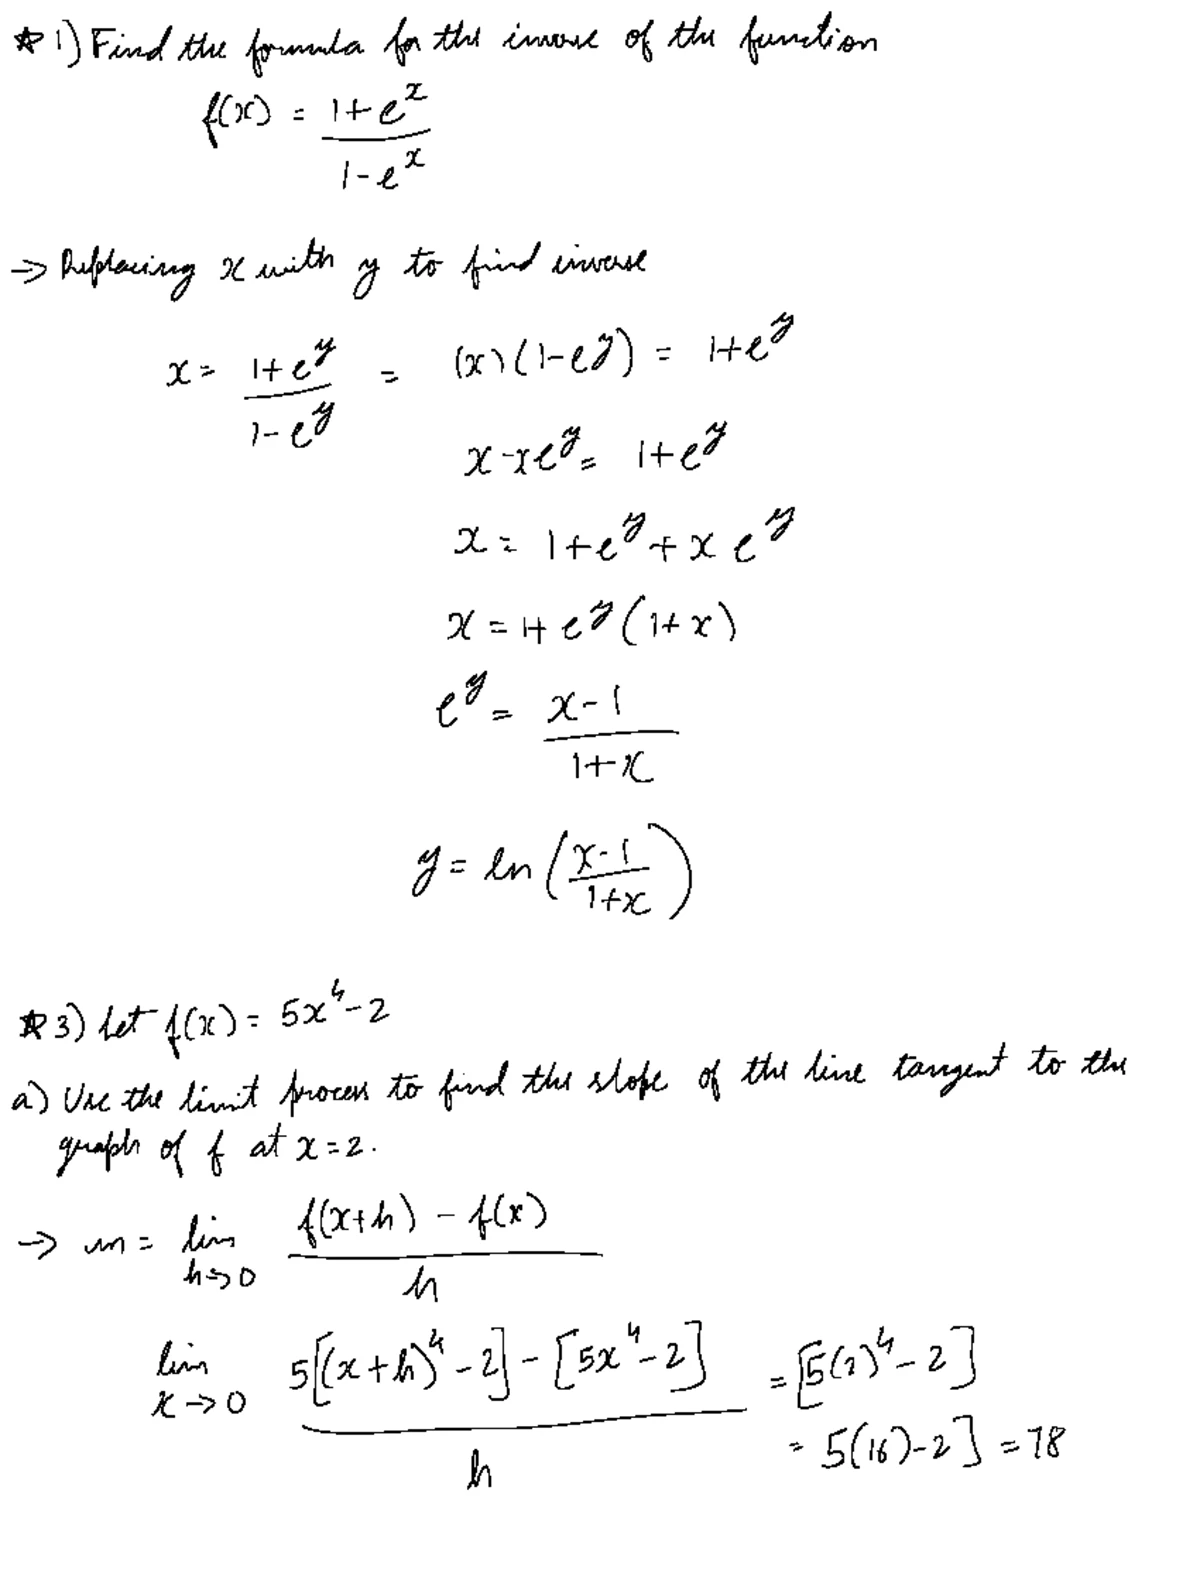 ☆ 1) Find the formula for the inverse of the function
f(x) = \frac{1+e^x}{1-e^x}
→ Replacing x with y to find inverse
x = \frac{1+e^y}{1-e^y} = (x)(1-e^y) = 1+e^y
x-xe^y = 1+e^y
x = 1+e^y+xe^y
x = 1+e^y(1+x)
e^y = \frac{x-1}{1+x}
y = ln(\frac{x-1}{1+x})
☆ 3) Let f(x) = 5x^4-2
a) Use the limit process to find the slope of the line tangent to the
graph of f at x=2.
→ m = lim_{h→0} \frac{f(x+h) - f(x)}{h}
lim_{x→0} \frac{5[(x+h)^4-2] - [5x^4-2]}{h} = [5(2)^4-2]
= 5(16)-2] = 78